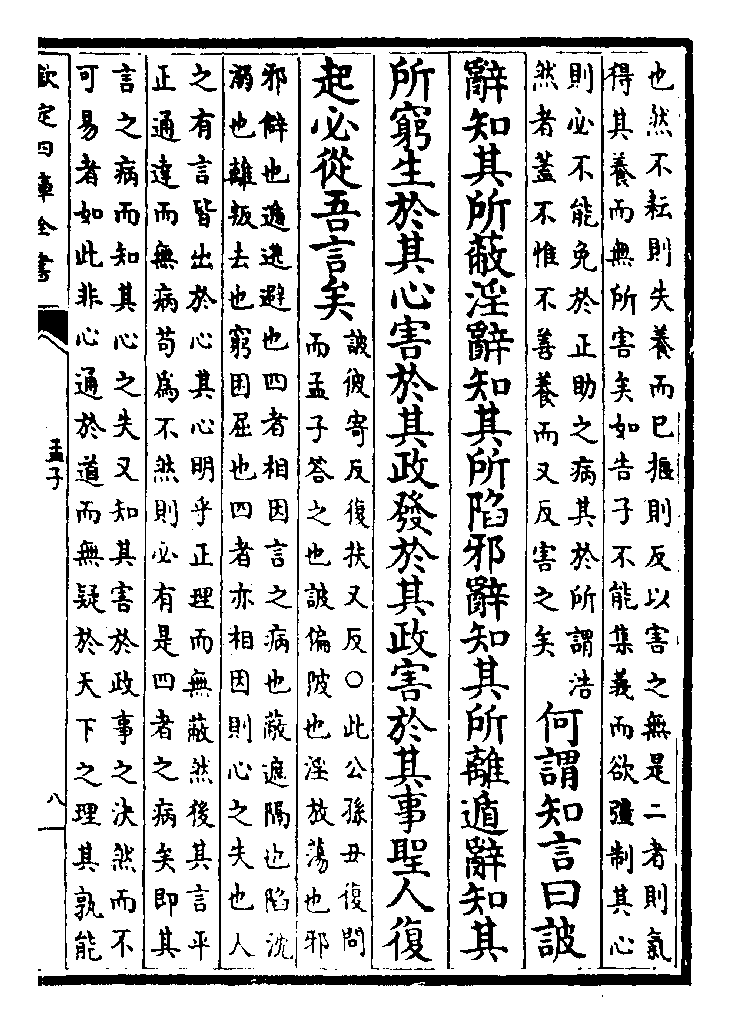 也然不耘則失養而已揠則反以害之無是二者則氣
得其養而無所害矣如告子不能集義而欲彊制其心
則必不能免於正助之病其於所謂浩
然者蓋不惟不善養而又反害之矣
何謂知言曰詖
辭知其所蔽淫辭知其所陷邪辭知其所離遁辭知其
所窮生於其心害於其政發於其政害於其事聖人復
起必從吾言矣
詖彼寄反復扶又反○此公孫丑復問
而孟子答之也詖偏陂也淫放蕩也邪
邪僻也遁逃避也四者相因言之病也蔽遮隔也陷沈
溺也離叛去也窮困屈也四者亦相因則心之失也人
之有言皆出於心其心明乎正理而無蔽然後其言平
正通達而無病苟爲不然則必有是四者之病矣即其
言之病而知其心之失又知其害於政事之決然而不
可易者如此非心通於道而無疑於天下之理其孰能
欽定四庫全書
孟子
八